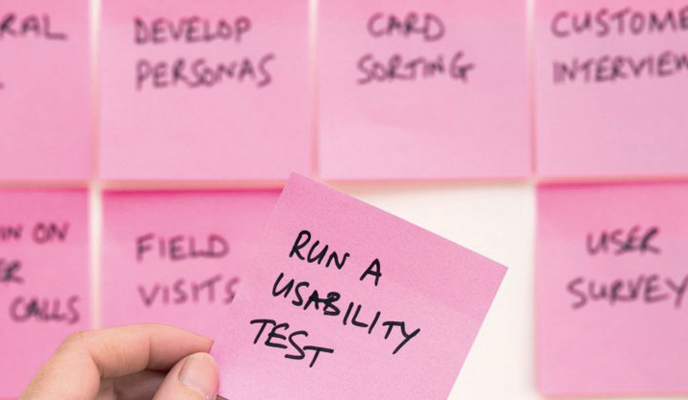 RAL
DEVELOP
PERSONAS
CARD
SORTING
CUSTOME
INTERVIEW
IN ON
ER
CALLS
FIELD
VISITS
RUN A
USABILITY
TEST
USER
SURVEY